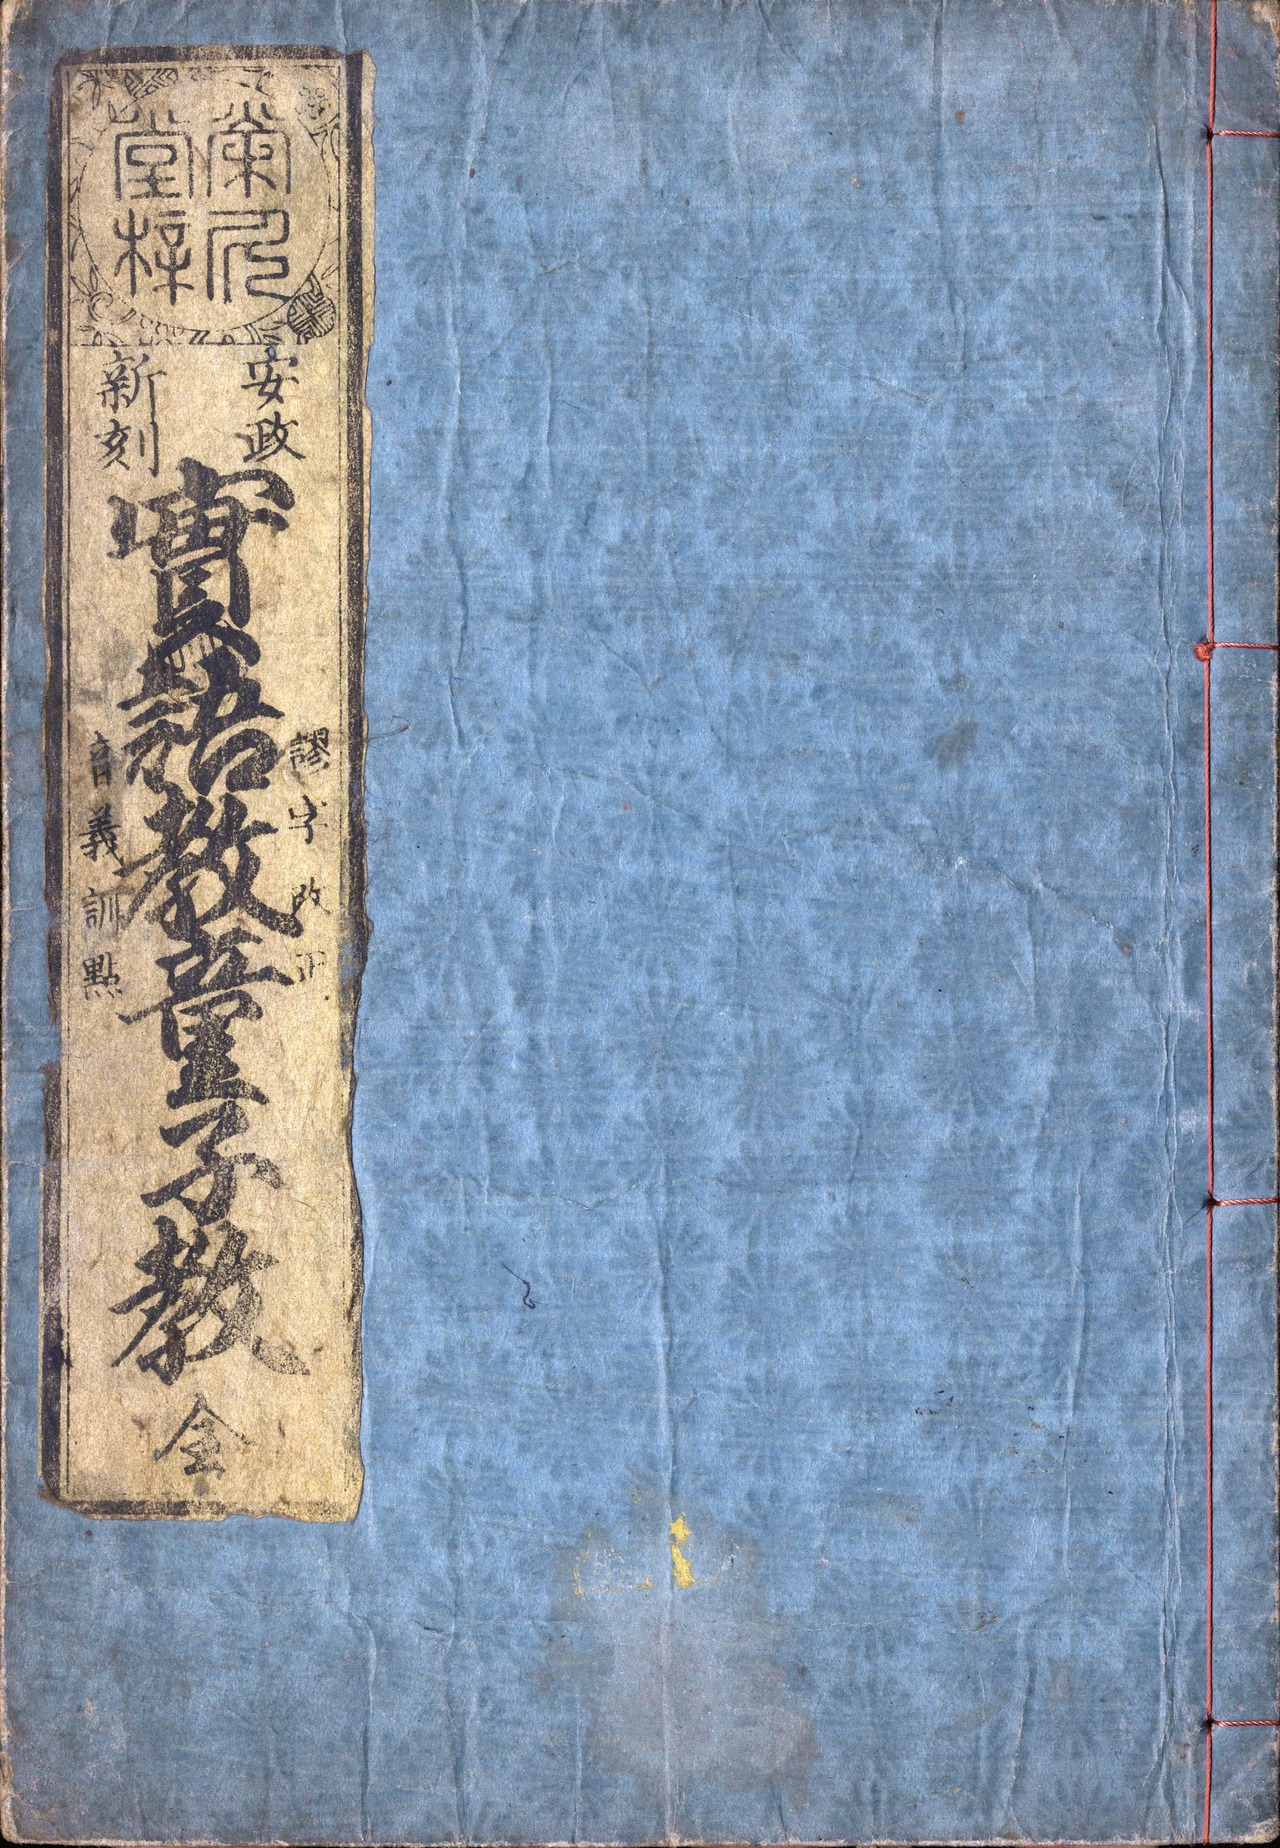 榮久
堂梓
安政
新刻
謬字改正
實語教童子教 全
音義訓點